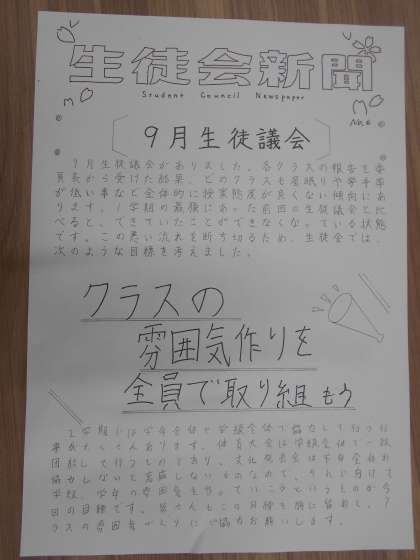 生徒会新聞
Student Council Newspaper
No.6
9月生徒議会
9月生徒議会がありました。各クラスの報告を委
員長から受けた結果、どのクラスも居眠りや挙手率
が低い事など全体的に授業態度が良くない傾向にあ
ります。1学期の最後にあった前回の生徒議会と比
べると、できていたことができなくなっている状態
です。この悪い流れを断ち切るため、生徒会では、
次のような目標を考えました。
クラスの
雰囲気作りを
全員で取り組もう
2学期には学年全体や学級全体で協力して行う行
事がたくさんあります。体育大会は学級全体で一致
団結して行うものであり、文化発表会は学年全員が
協力しないと完成しないものなので、それに向けて
学級、学年の雰囲気を作っていこうというものが今
回の目標です。皆さんもこの目標を胸に留めて、ク
ラスの雰囲気づくりにご協力お願いします。